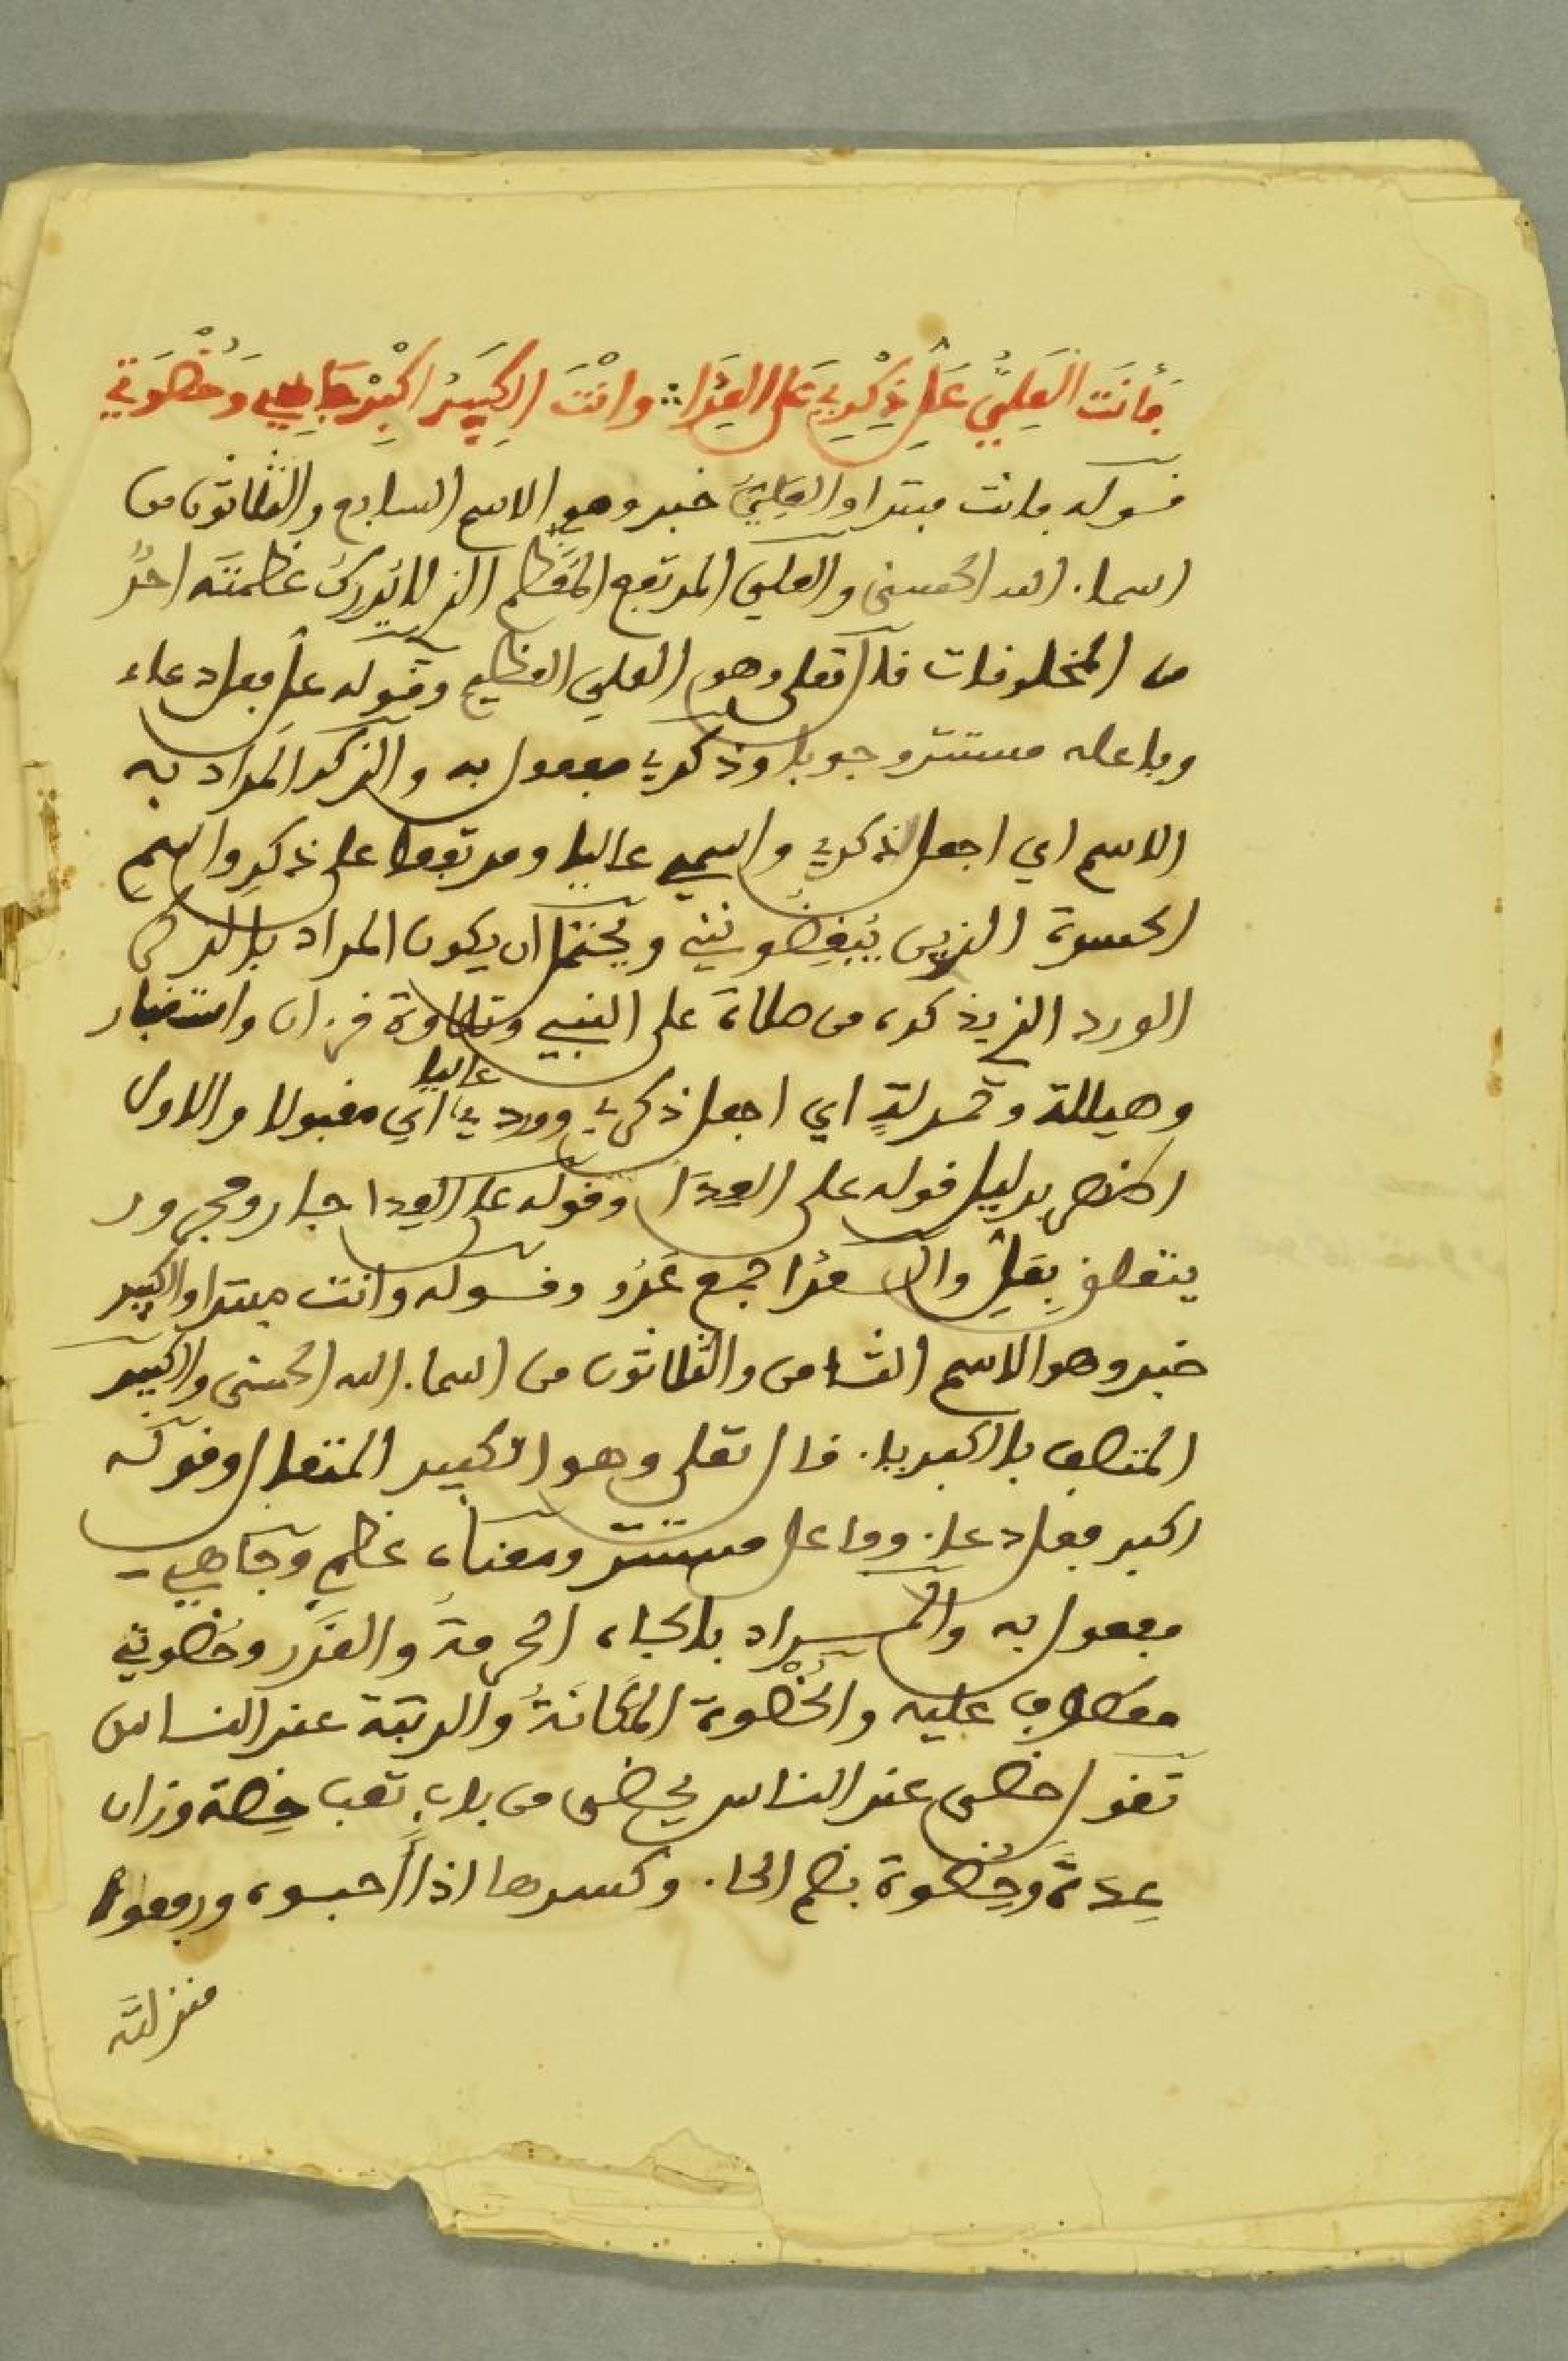 فأنت العَلِيُّ عَلِّ ذِكْرِي عَلى العِدَا ∴ وانْتَ الكَبِيرُ اكْبِرْ جَاهِي وَحُظْوَتِي
قوله فانت مبتدا والعليُّ خبر وهو الاسم السابع والثلاثون من
اسماء الله الحسنى والعلي المرتفع المُعَظَّم الذي لا يُدرِكُ عظمتَه احدٌ
من المخلوقات قال تعلى وهو العلي العظيم وقوله علِّ فعل دعاء
وفاعله مستتر وجوبا وذكري مفعول به والذكر المراد به
الاسم اي اجعل ذكري واسمي عاليا ومرتفعا على ذكر واسم
الحسدة الذين يُبْغِضُونَنِي ويحتمل ان يكون المراد بالذكر
الورد الذي يذكره من صلاة على النبي وتلاوة قرءان واستغفار
وهيللة وحمدلةٍ اي اجعل ذكري ووردي عاليا اي مقبولا والاول
اظهر بدليل قوله على العِدَا وقوله على العِدا جار ومجرور
يتعلق بِعَلِّ والعدا جمع عَدُوٍّ وقوله وانت مبتدا والكبير
خبر وهو الاسم الثامن والثلاثون من اسماء الله الحسنى والكبير
المتصف بالكبرياء قال تعلى وهو الكبير المتعال وقوله
اكبر فعل دعاء وفاعل مستتر ومعناه عظم وجاهي
مفعول به والمراد بالجاه الحرمةُ والقَدْر وحُظوتي
معطوف عليه والحُظْوة المَكانَةُ والرتبة عند الناس
تقول حظى عند الناس يحظى من باب تعب حِظة وزان
عِدَةٍ وحُِظوة بضم الحاء وكسرها اذا أحبوه ورفعوا
منزلته